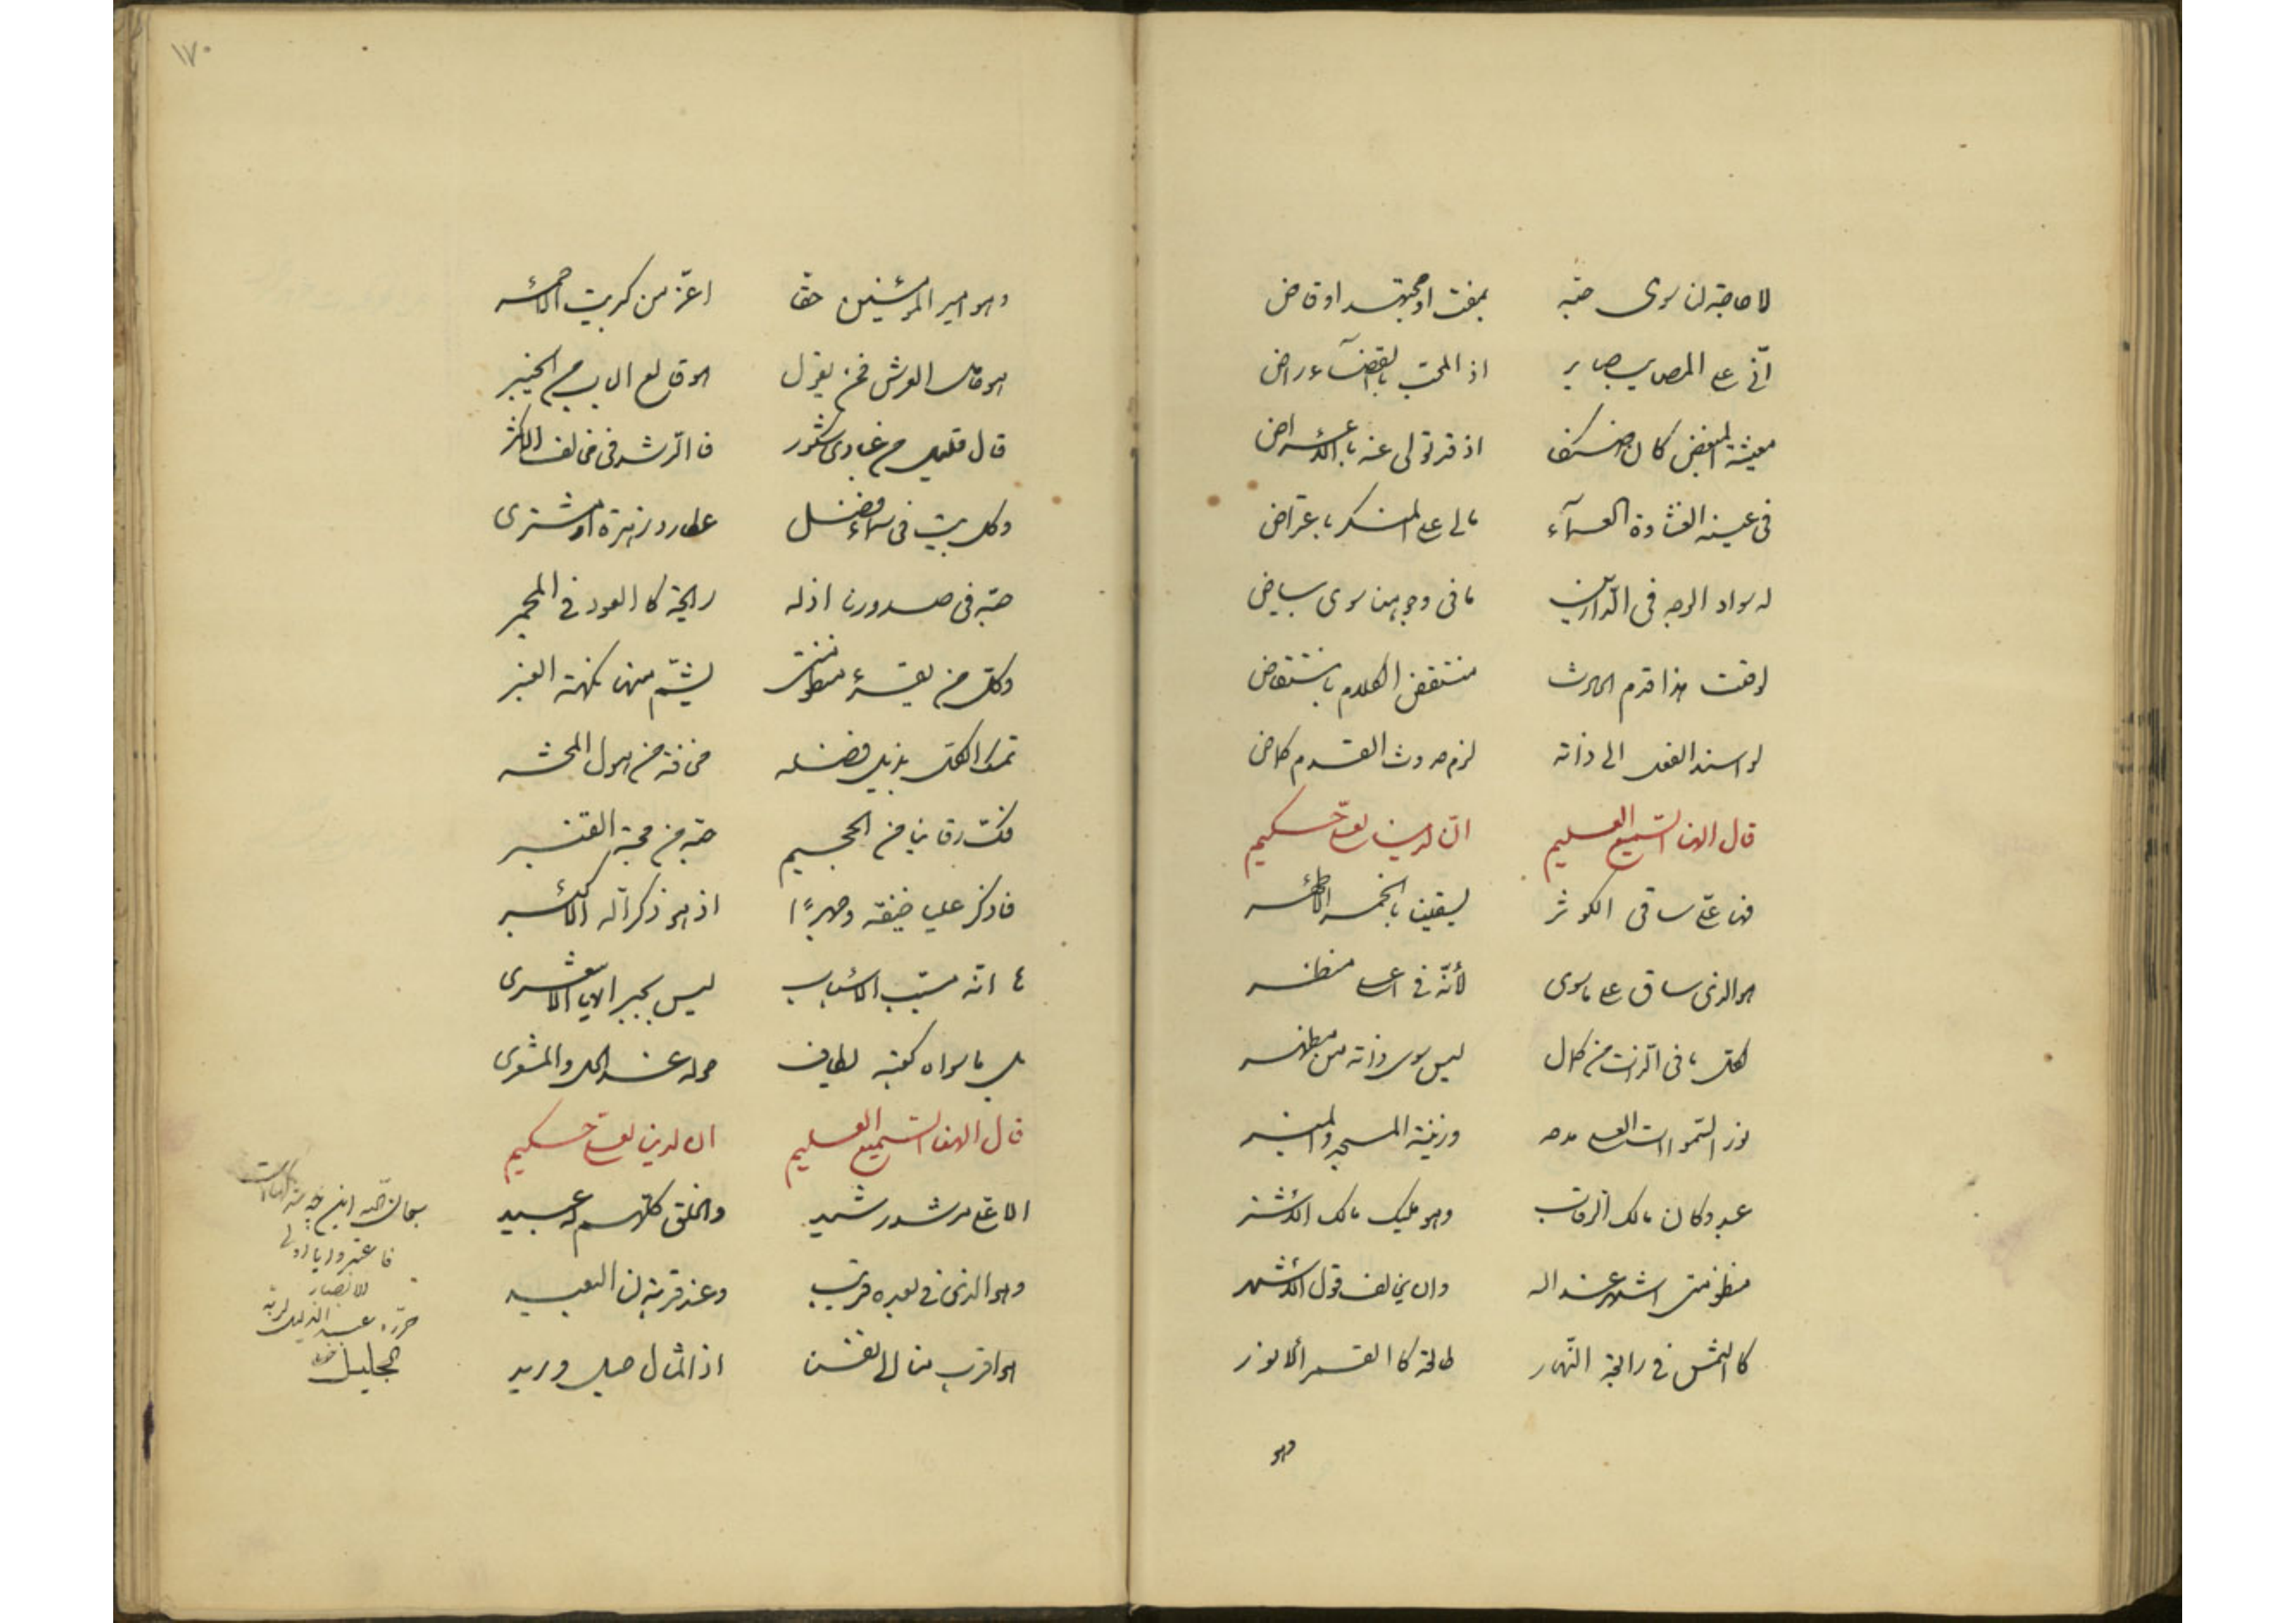 لا حاجة لنا سوى حبّه بمفت او مجتهد او قاض
انّى على المصايب صابر اذ المحبّ بالقضآء راض
معيشة المبغض كان ضنكا اذ قد تولى عنه بالاعراض
فى عينه الغشاوة العمآء مالى على المنكر باعتراض
له سواد الوجه فى الدّارين ما فى وجوهنا سوى بياض
لو قلت هذا قدم الحادث منتقض الكلام بانتقاض
لو اسند الفعل الى ذاته لزم حدوث القدم كاض
قال الهنا السّميع العليم انّ لدينا لعلىّ حكيم
علىّ ساقى الكوثر يسقينا بالخمر الاطهر
هو الذى ساق على ما سوى لأنّه فى اعلى منظر
لكل ما فى الذات من كمال ليس سوى ذاته من مظهر
نور السّموات العلى وزينة المسجد والمنبر
عبد وكان مالك الرّقاب وهو مليك مالك الاشتر
منظومتى اشهر عند الله وان يخالف قول الاشهر
كالشمس فى رابعة النّهار طالعة كالقمر الانور
وهو
١٧٠
وهو امير المؤمنين حقا اعزّ من كبريت الاحمر
هو العرش فمن يقول هو قالع الباب من الخيبر
قال قليل من عبادى شكور فالرّشد فى خالف الاكثر
وكل بيت فى سمآء فضل عطارد زهرة او مشترى
حبّه فى صدورنا اذ له رايحة كالعود فى المجمر
وكلّ من يقرء منظومتى يشمّ منها نكهة العنبر
تمسّك الكل بذيل فضله مخافة من هول المحشر
فكّت رقابنا من الجحيم حبّه من محبّة القنبر
فاذكر عليا خيفة وجهرًا اذ هو ذكر الله الاكبر
انّه مسبّب الاسباب ليس بجبر الاشعرى
بل ما سواه كعبة لطايف حوله عند الكل والمشعرى
قال الهنا السّميع العليم ان لدينا لعلىّ حكيم
الا علىّ مرشد رشيد والخلق كلّهم له عبيد
وهو الذى فى بعده قريب وعند قربه لنا البعيد
هو اقرب منا الى انفسنا اذ قال حبل وريد
سبحان الله
فاعتبروا يا اولى
الابصار
حرّره عبد الذليل لربّه
الجليل